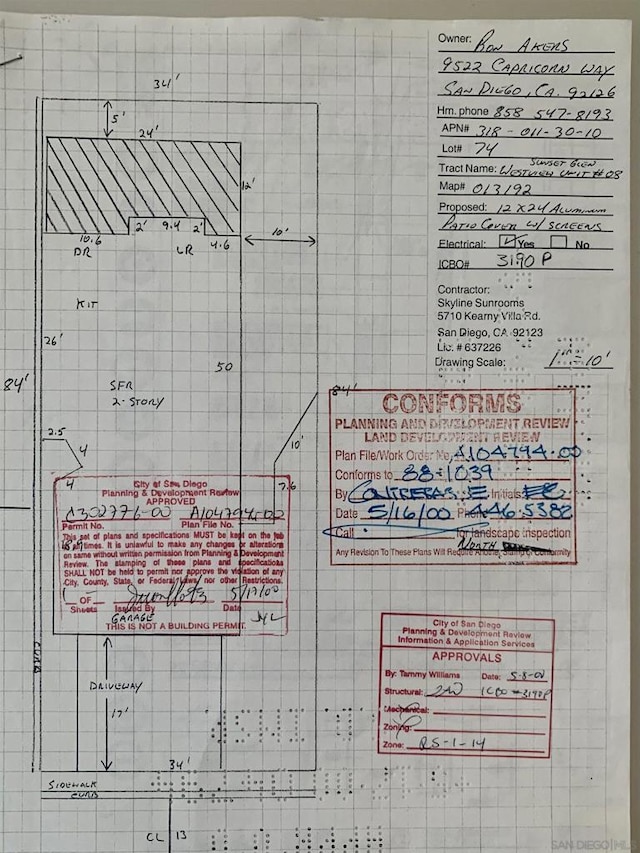 Owner: RON AKERS
9522 CAPRICORN WAY
SAN DIEGO, CA. 92126
Hm. phone 858 547-8193
APN# 318-011-30-10
Lot# 74
SUNSET GLEN
Tract Name: WESTVIEW UNIT #08
Map# 013192
Proposed: 12 X 24 ALUMINUM
PATIO COVER W/ SCREENS
Electrical: Yes No
ICBO# 3190 P
Contractor:
Skyline Sunrooms
5710 Kearny Villa Rd.
San Diego, CA 92123
Lic. # 637226
Drawing Scale: 1" = 10'
34'
5'
24'
12'
2' 9.4 2'
10.6
4.6
10'
DR
LR
KIT
26'
50
84'
84'
SFR
2-STORY
2.5
4
4
10'
7.6
CONFORMS
PLANNING AND DEVELOPMENT REVIEW
LAND DEVELOPMENT REVIEW
Plan File/Work Order No. A104794-00
Conforms to 88-1039
By CONTRERAS, E Initials EC
Date 5/16/00 Phone 446-5382
Call for landscape inspection
NORTH
Any Revision To These Plans Will Require Another Stamp of Conformity
City of San Diego
Planning & Development Review
APPROVED
A302776-00 A104794-00
Permit No. Plan File No.
This set of plans and specifications MUST be kept on the job
at all times. It is unlawful to make any changes or alterations
on same without written permission from Planning & Development
Review. The stamping of these plans and specifications
SHALL NOT be held to permit nor approve the violation of any
City, County, State, or Federal laws, nor other Restrictions.
1 OF 5/17/00
Sheets Issued By Date
GARAGE
THIS IS NOT A BUILDING PERMIT.
City of San Diego
Planning & Development Review
Information & Application Services
APPROVALS
By: Tammy Williams Date: 5-8-00
Structural: ICBO #3190P
Mechanical:
Zoning:
Zone: RS-1-14
CURB
DRIVEWAY
17'
34'
SIDEWALK
CURB
CL 13
SAN DIEGO MLS